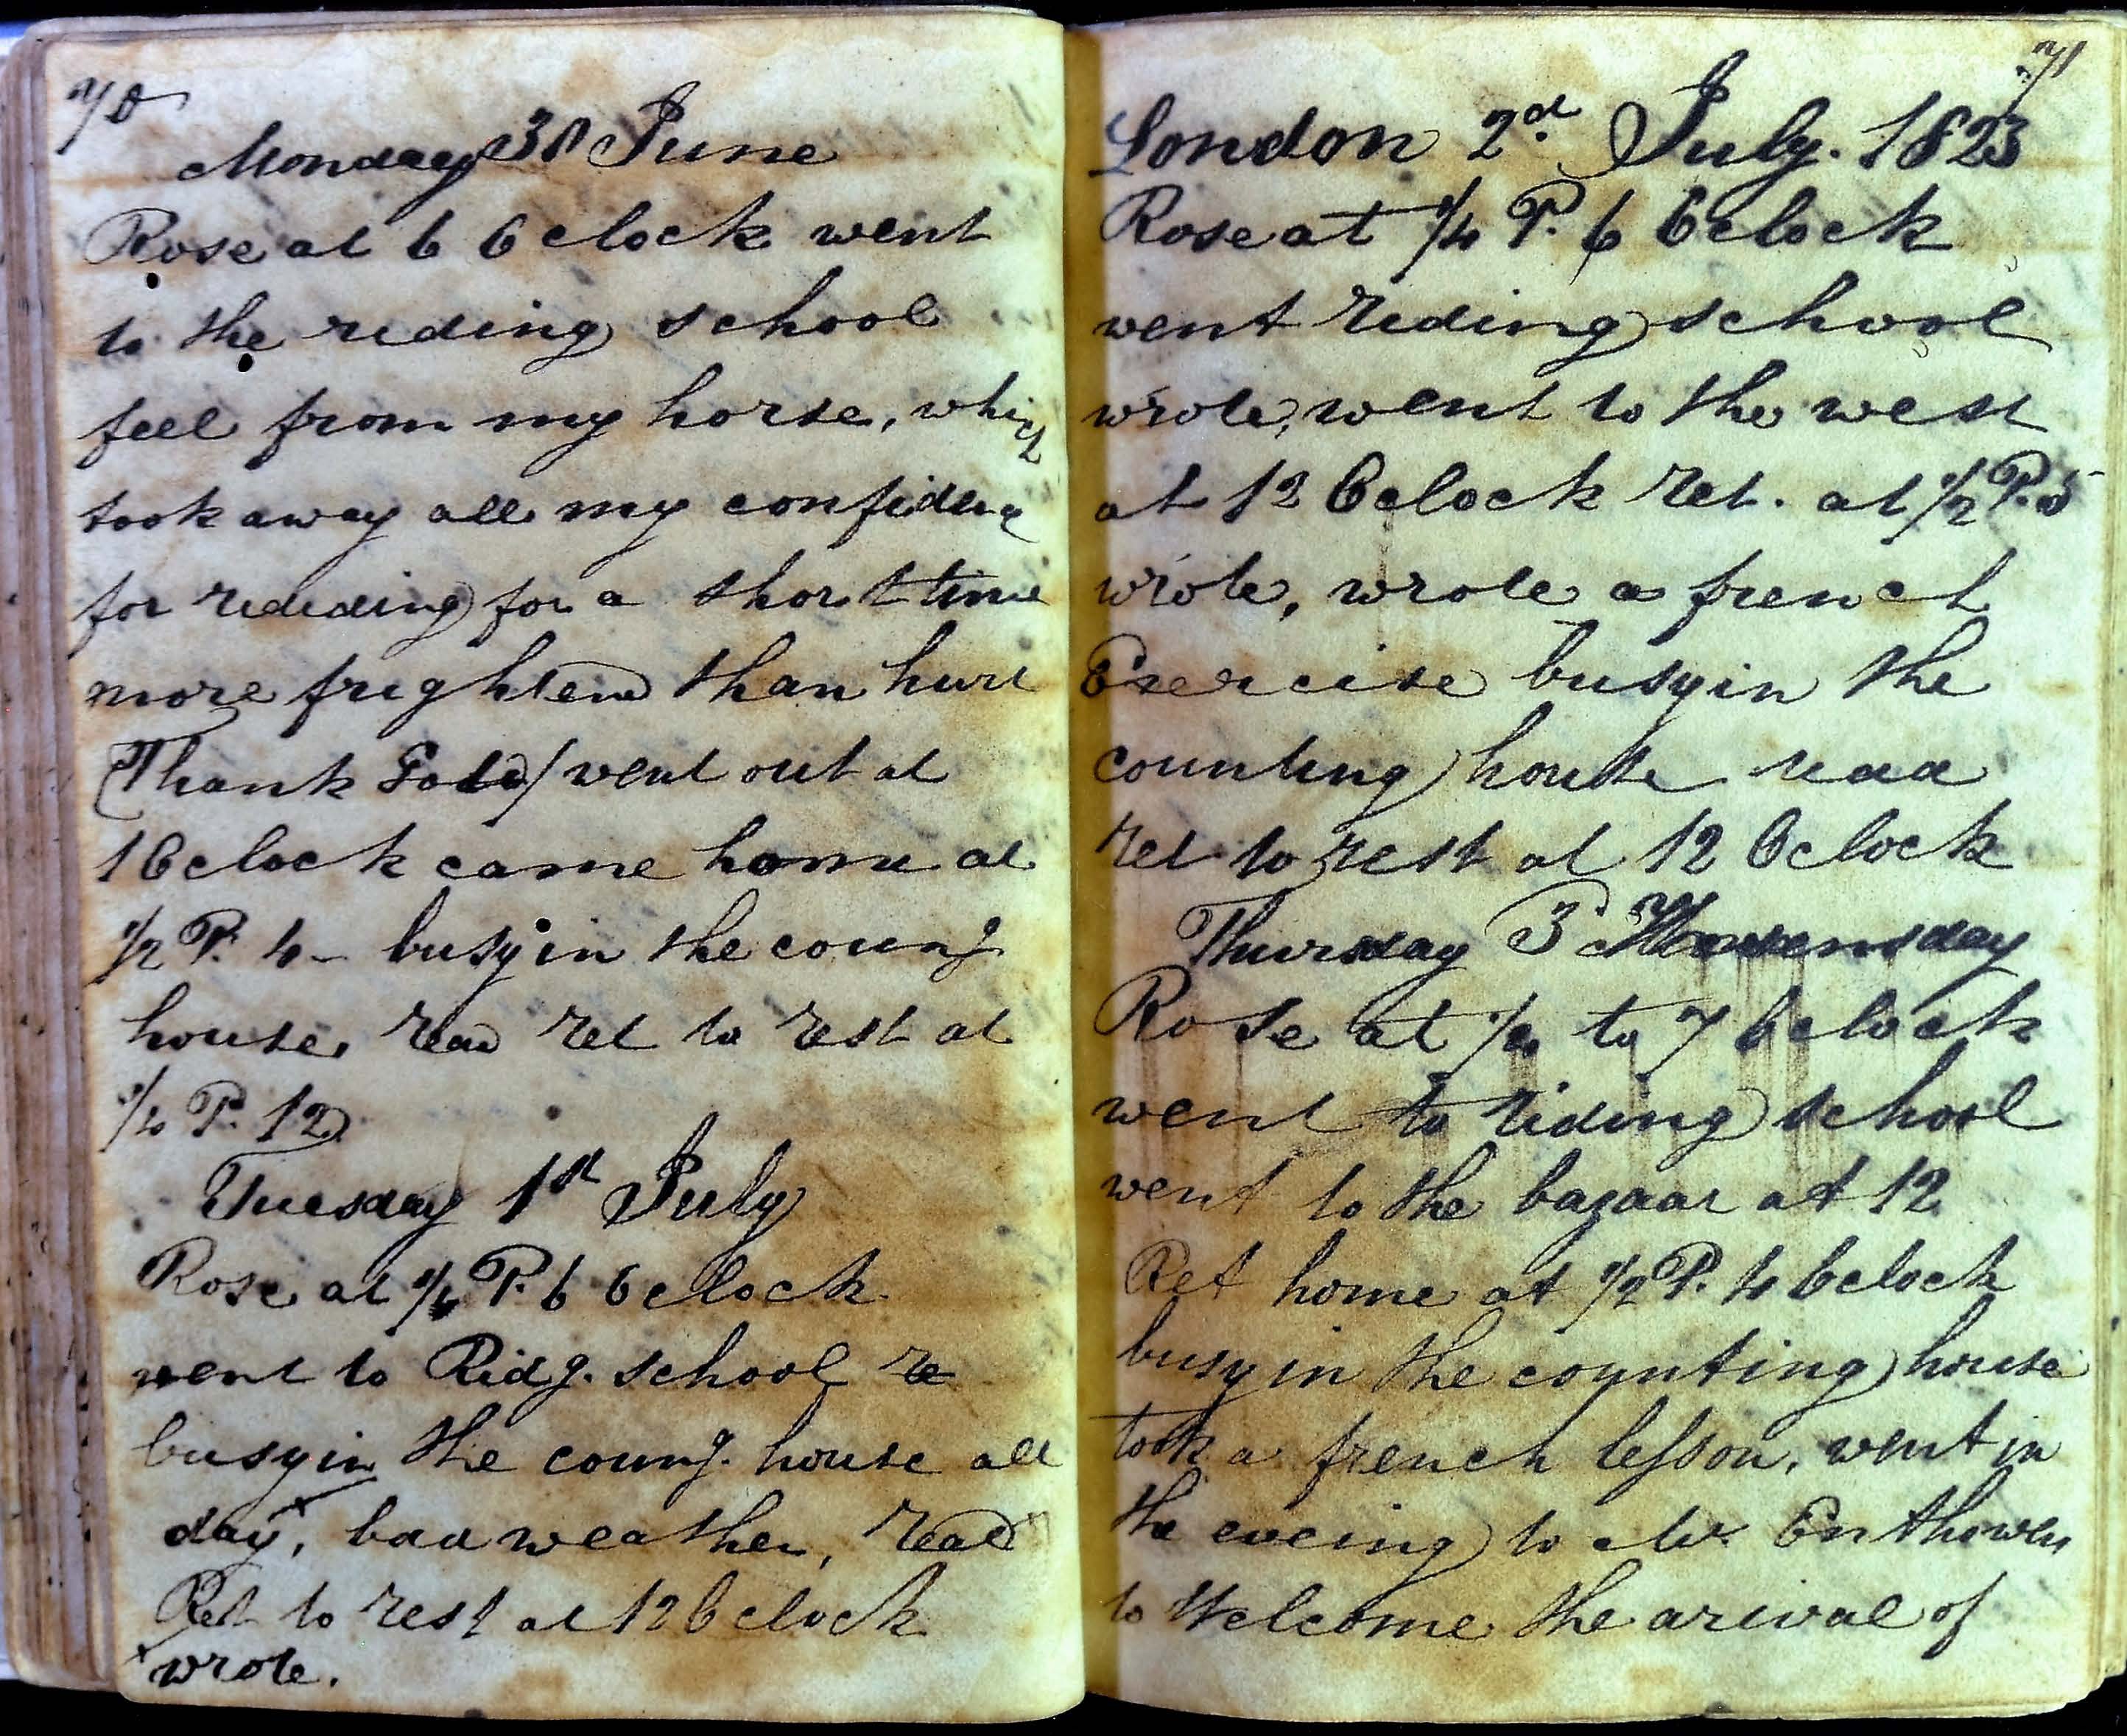 70
Monday 30 June
Rose at 6 Oclock went
to the reding school
feel from my horse, which
took away all my confidence
for rededing for a short time
more frightend than hurt
(Thank God) went out at
1 Oclock came home at
1/2 P. 4 – busy in the coung
house, read ret to rest at
1/4 P. 12
Tuesday 1st July
Rose at 1/4 P. 6 Oclock
went to Ridg. school re
busy in the coung. house all
day, bad weather, read
Ret to rest at 12 Oclock
wrote.
71
London 2d July. 1823
Rose at 1/4 P. 6 Oclock
went reding school
wrote, went to the west
at 12 Oclock ret. at 1/2 P. 5
wrote, wrote a french
Exercise busy in the
counting house read
ret to rest at 12 Oclock
Thursday 3
Rose at to 7 Oclock
went to riding school
went to the bazaar at 12
Ret home at 1/2 P. 4 Oclock
busy in the counting house
took a french lesson, went in
the eveing to Mr. Enthoven
to Welcome the arival of